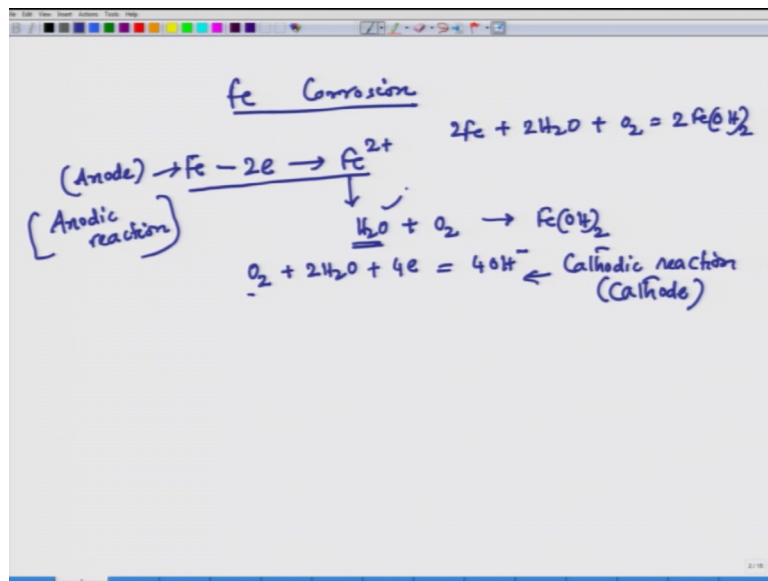 File Edit View Insert Actions Tools Help
Fe Corrosion
2Fe + 2H₂O + O₂ = 2Fe(OH)₂
(Anode) → Fe - 2e → Fe²⁺
[Anodic reaction]
↓
H₂O + O₂ → Fe(OH)₂
O₂ + 2H₂O + 4e = 4OH⁻ ← Cathodic reaction
(Cathode)
2/18